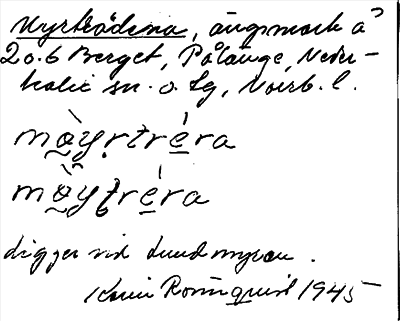 Myrträdena, ängsmark å
2 o. 6 Berget, Pålänge, Neder-
kalix sn. o. tg, Norrb. l.
mò̤yṛtré̱ra
mò̤yṭré̱ra
ligger vid Lundmyran.
Karin Rönnquist 1945